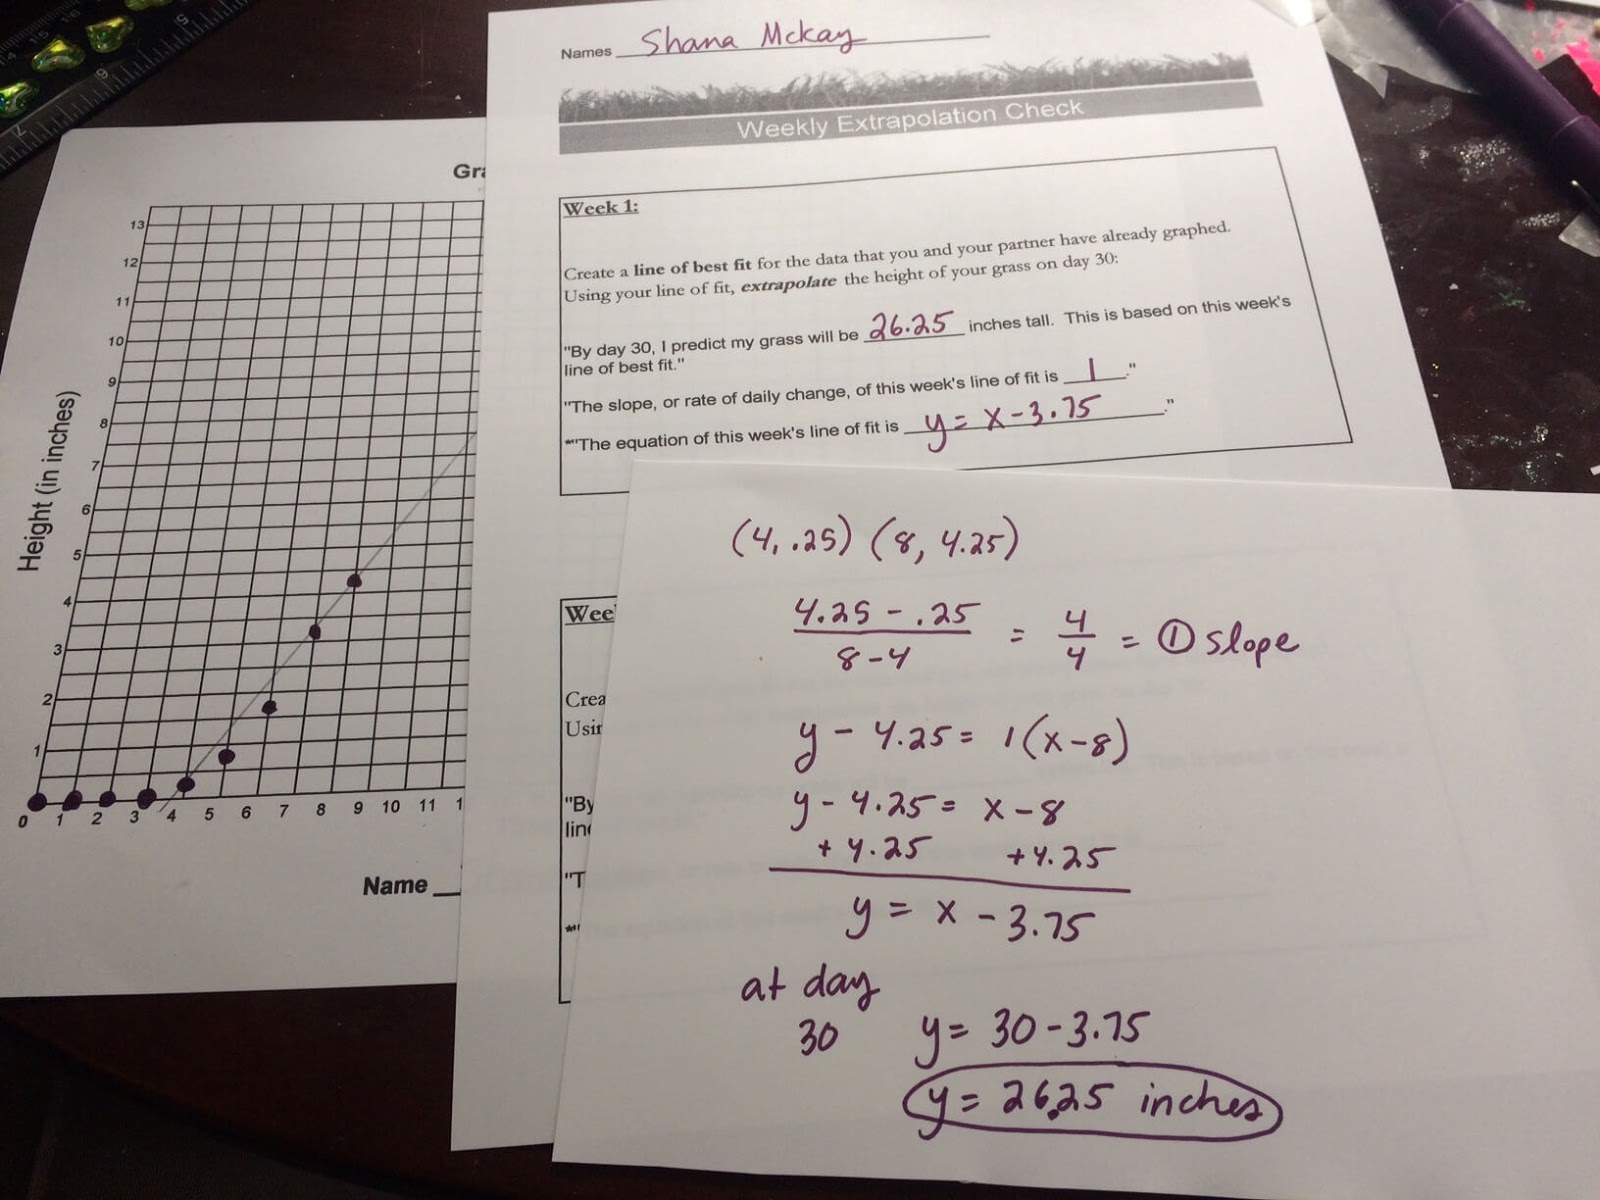 Names Shana McKay
Weekly Extrapolation Check
Week 1:
Create a line of best fit for the data that you and your partner have already graphed.
Using your line of fit, extrapolate the height of your grass on day 30:
"By day 30, I predict my grass will be 26.25 inches tall. This is based on this week's
line of best fit."
"The slope, or rate of daily change, of this week's line of fit is 1."
*"The equation of this week's line of fit is y = x - 3.75."
Wee
Crea
Usin
"By
line
"T
*"
Gra
13
12
11
10
9
8
7
6
5
4
3
2
1
Height (in inches)
0 1 2 3 4 5 6 7 8 9 10 11 1
Name
(4, .25) (8, 4.25)
4.25 - .25
8 - 4
= 4/4 = 1 slope
y - 4.25 = 1(x - 8)
y - 4.25 = x - 8
+ 4.25 + 4.25
y = x - 3.75
at day
30 y = 30 - 3.75
y = 26.25 inches